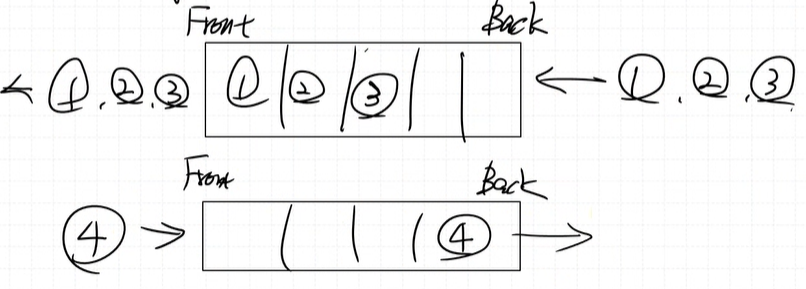 Front Back
← ①, ②, ③ ① ② ③ ← ①, ②, ③
Front Back
④ → ④ →